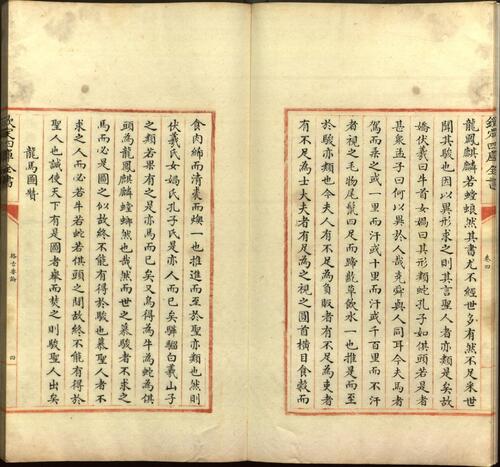 欽定四庫全書
卷四
龍鳳麒麟若螳螂然其書尤不經世多有然不足采世
聞其駿也因以異形求之則其言聖人者亦類是矣故
傳伏羲曰牛首女媧曰其形類蛇孔子如倛頭若是者
甚衆孟子曰何以異於人哉堯舜與人同耳今夫馬者
駕而乘之或一里而汗或十里而汗或千百里而不汗
者視之毛物尾鬣四足而蹄齕草飲水一也推是而至
於駿亦類也今夫人有不足為負販者有不足為吏者
有不足為士大夫者有足為之視之圓首横目食穀而
食肉絺而清裘而燠一也推進而至於聖亦類也然則
伏羲氏女媧氏孔子氏是亦人而已矣驊騮白羲山子
之類若果有之是亦馬而已矣又烏得為牛為蛇為倛
頭為龍鳳麒麟螳螂然也哉然而世之慕駿者不求之
馬而必是圖之似故終不能有得於駿也慕聖人者不
求之人而必若牛若蛇若倛頭之問故終不能有得於
聖人也誠使天下有是圖者舉而焚之則駿聖人出矣
龍馬圖贊
欽定四庫全書
格古要論
四